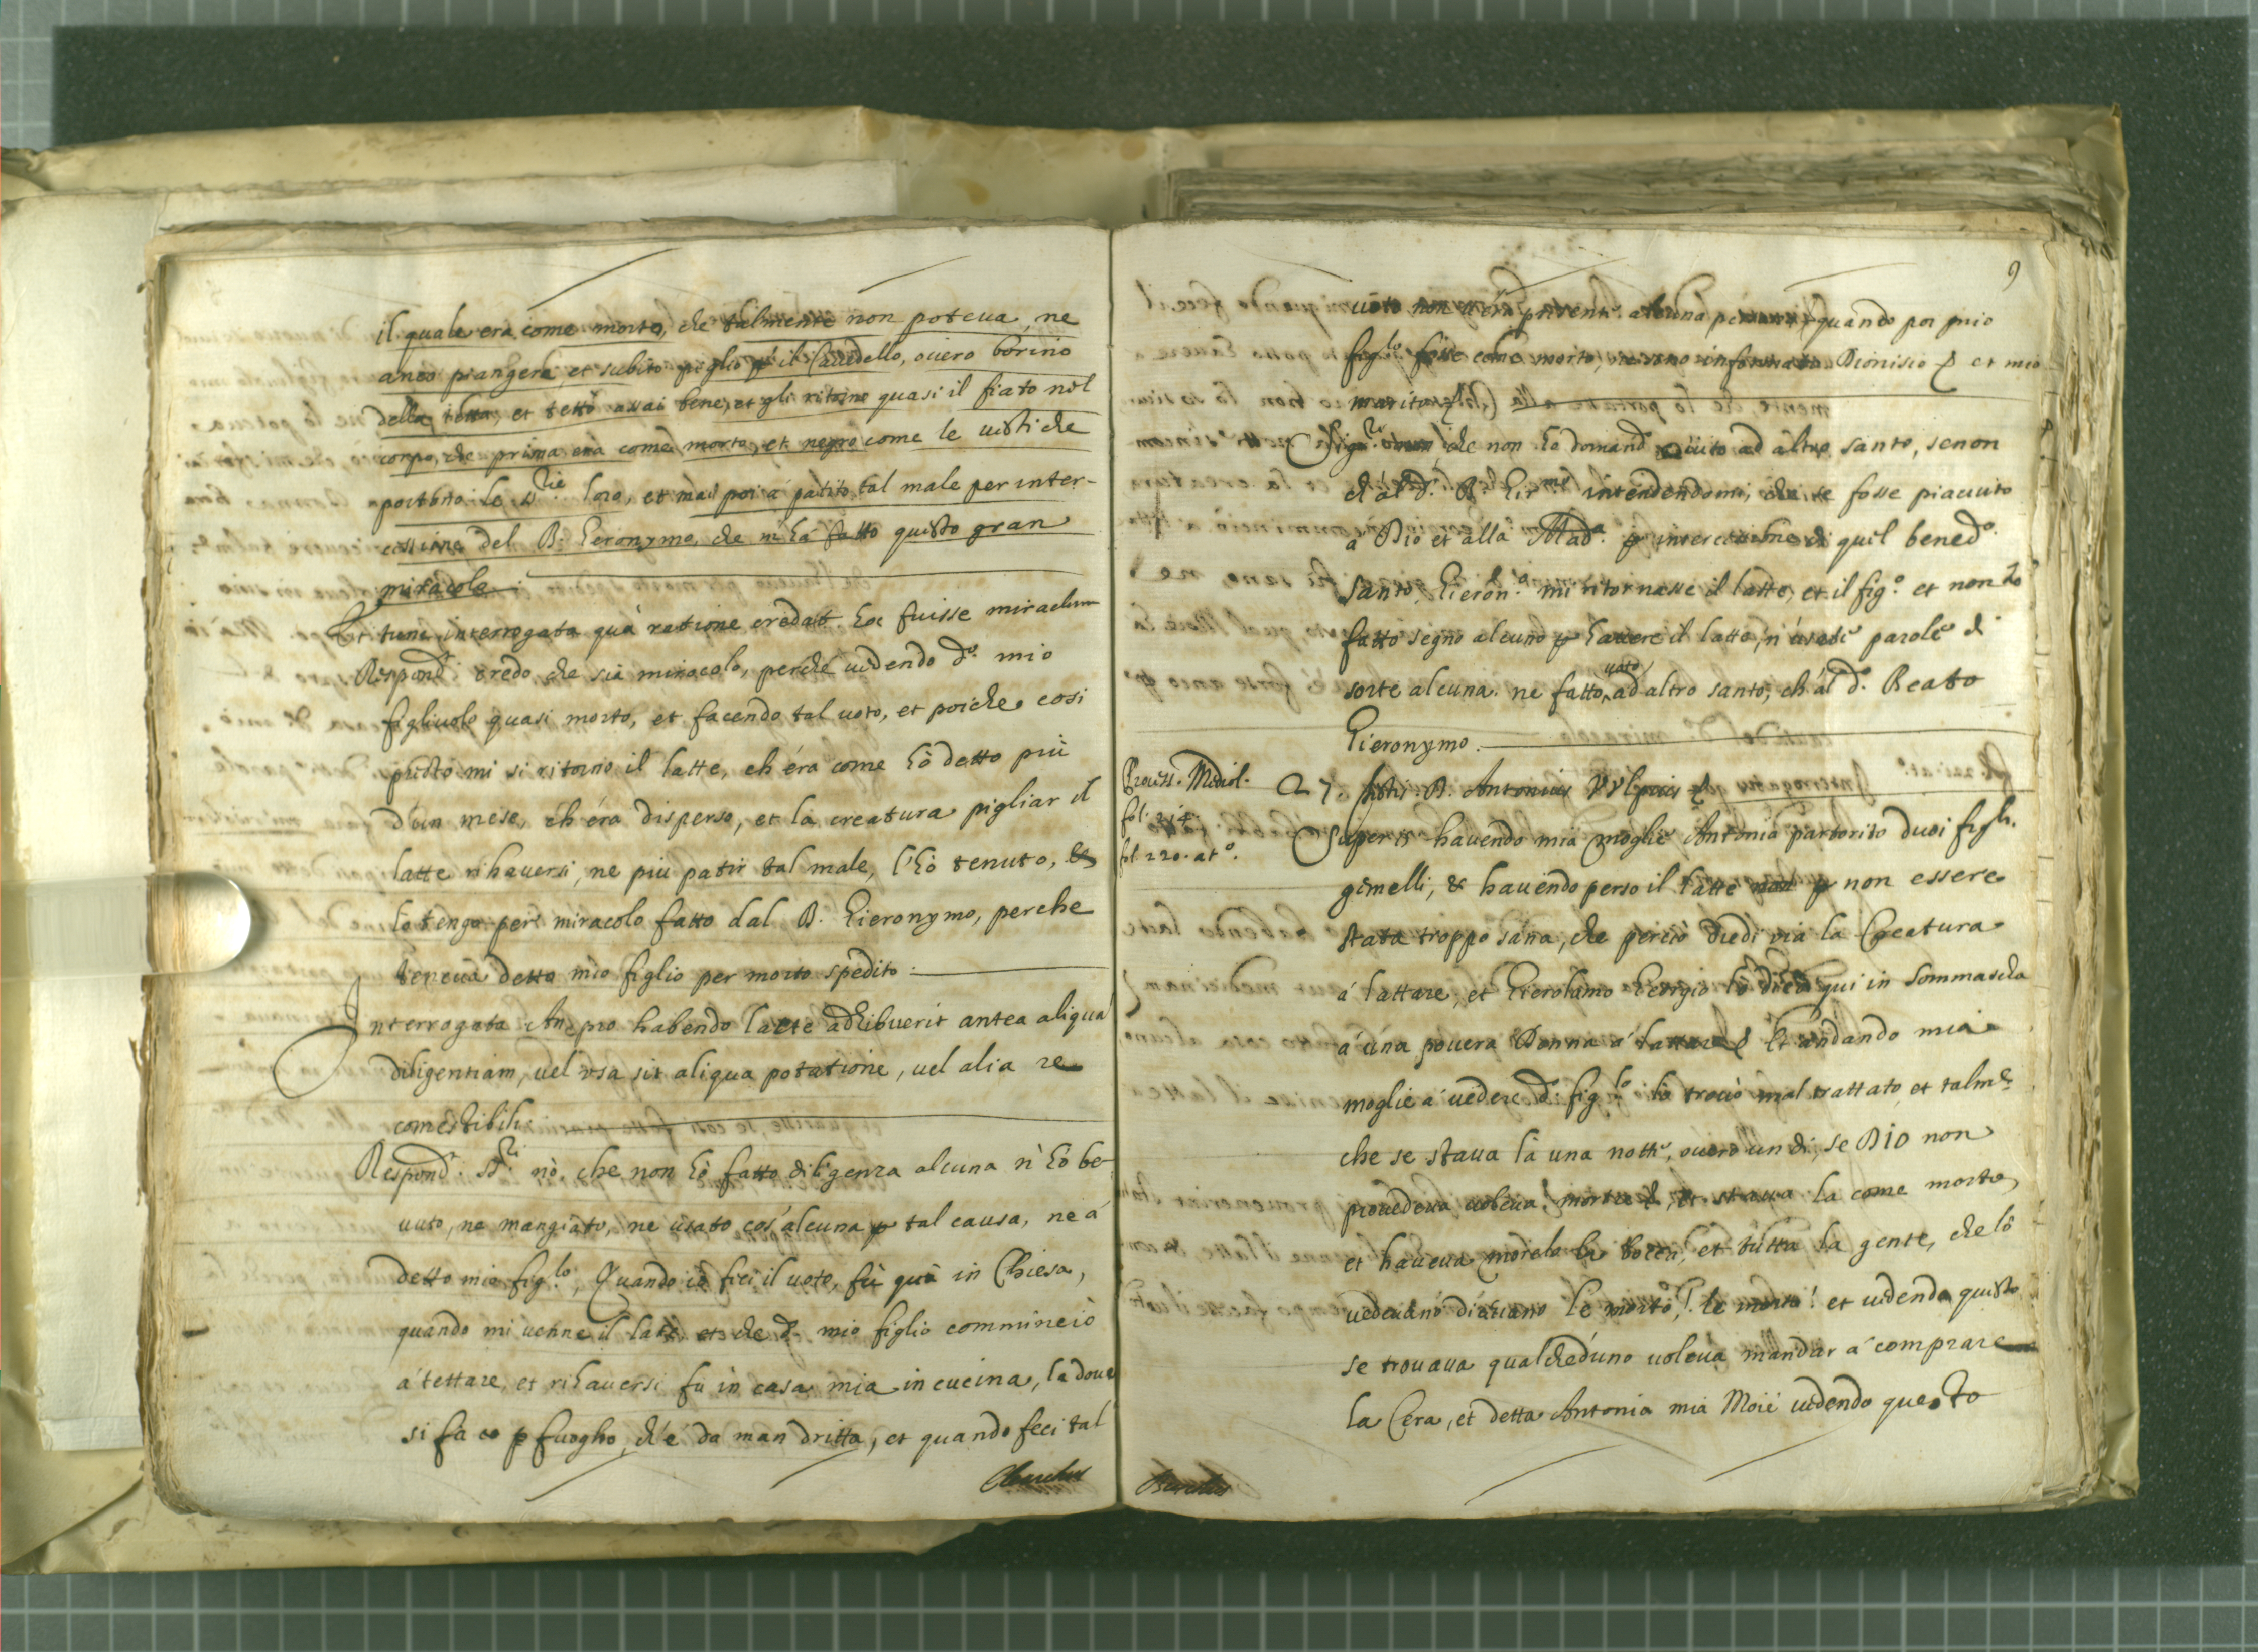 il quale era come morto, che talmente non poteua, ne
anco piangere, et subito piglio il Cauedello, ouero borino
della tetta, et tettò assai bene, et gli ritorno quasi il fiato nel
corpo, che prima era come morto, et negro come le uesti che
portano le S.rie loro, et mai poi à patito tal male per inter-
cessione del B. Gieronymo, che m'hà fatto questo gran
miracolo.
Et tunc interrogata quà ratione credat hoc fuisse miraclum
Respond. credo che sia miracolo, perche uedendo d.o mio
figliuolo quasi morto, et facendo tal uoto, et poiche cosi
presto mi si ritorno il latte, ch'éra come hò detto più
d'un mese, ch'éra disperso, et la creatura pigliar il
latte rihauersi, ne più patir tal male, l'hò tenuto, &
lo tengo per miracolo fatto dal B. Gieronymo, perche
teneua detto mio figlio per morto spedito.
Interrogata An pro habendo lacte adhibuerit antea aliqua
diligentiam, uel vsa sit aliqua potatione, uel alia re
comestibili
Respond. S.ri nò, che non hò fatto diligenza alcuna n'hò be-
uuto, ne mangiato, ne usato cos'alcuna p tal causa, ne á
detto mio fig.lo, Quando io feci il uoto, fù quà in Chiesa,
quando mi uenne il latte et che d. mio figlio comminciò
á tettare, et rihauersi fù in casa mia in cucina, la doue
si fa p fuogho, ch'é da man dritta, et quando feci tal
9
uoto non u'era presente alcuna quando poi mio
fig.lo fosse come morto, Dionisio et mio
marito
che non hò domand. aiuto ad altro santo, senon
ch'al d. B. Gir.mo intendendomi, che se fosse piaciuto
á Dio et alla Mad.a p intercessione di quel bened.o
santo Gieron.o mi ritornasse il latte, et il fig.o et non hò
fatto segno alcuno p hauere il latte, parole di
sorte alcuna. ne fatto uoto ad altro santo, ch'al d. Beato
Gieronymo.
Process. Mediol.
fol. 214.
fol. 220. at.o
27. testis. D. Antonius Vulpius
Super 13 hauendo mia moglie Antonia partorito duoi figli.
gemelli, & hauendo perso il latte p non essere
stata troppo sana, che perciò diedi via la Creatura
á lattare, et Gierolamo lo diede qui in Sommascha
á una pouera Donna á lattare Et andando mia
moglie á uedere d. fig.lo lo trouò mal trattato et talm.te
che se staua là una notte, ouero un di, se DIO non
prouedeua uoleua morire, et staua la come morto,
et haueua morelo la bocca, et tutta la gente, che lo
uedeuano diceuano l'e morto, l'e morto! et uedendo questo
se trouaua qualched'uno uoleua mandar á comprare
la Cera, et detta Antonia mia Moié uedendo questo